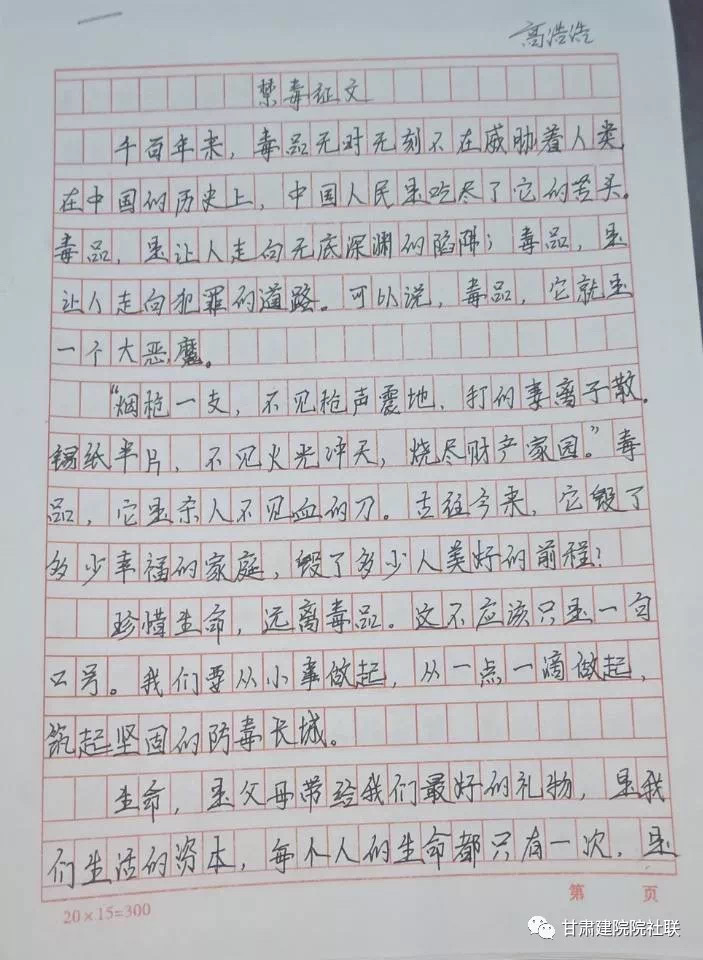 高浩浩
禁毒征文
千百年来，毒品无时无刻不在威胁着人类
在中国的历史上，中国人民是吃尽了它的苦头。
毒品，是让人走向无底深渊的陷阱；毒品，是
让人走向犯罪的道路。可以说，毒品，它就是
一个大恶魔。
“烟枪一支，不见枪声震地，打的妻离子散。
锡纸半片，不见火光冲天，烧尽财产家园。”毒
品，它是杀人不见血的刀。古往今来，它毁了
多少幸福的家庭，毁了多少人美好的前程？
珍惜生命，远离毒品。这不应该只是一句
口号。我们要从小事做起，从一点一滴做起，
筑起坚固的防毒长城。
生命，是父母带给我们最好的礼物，是我
们生活的资本，每个人的生命都只有一次，是
第 页
20×15=300
甘肃建院院社联